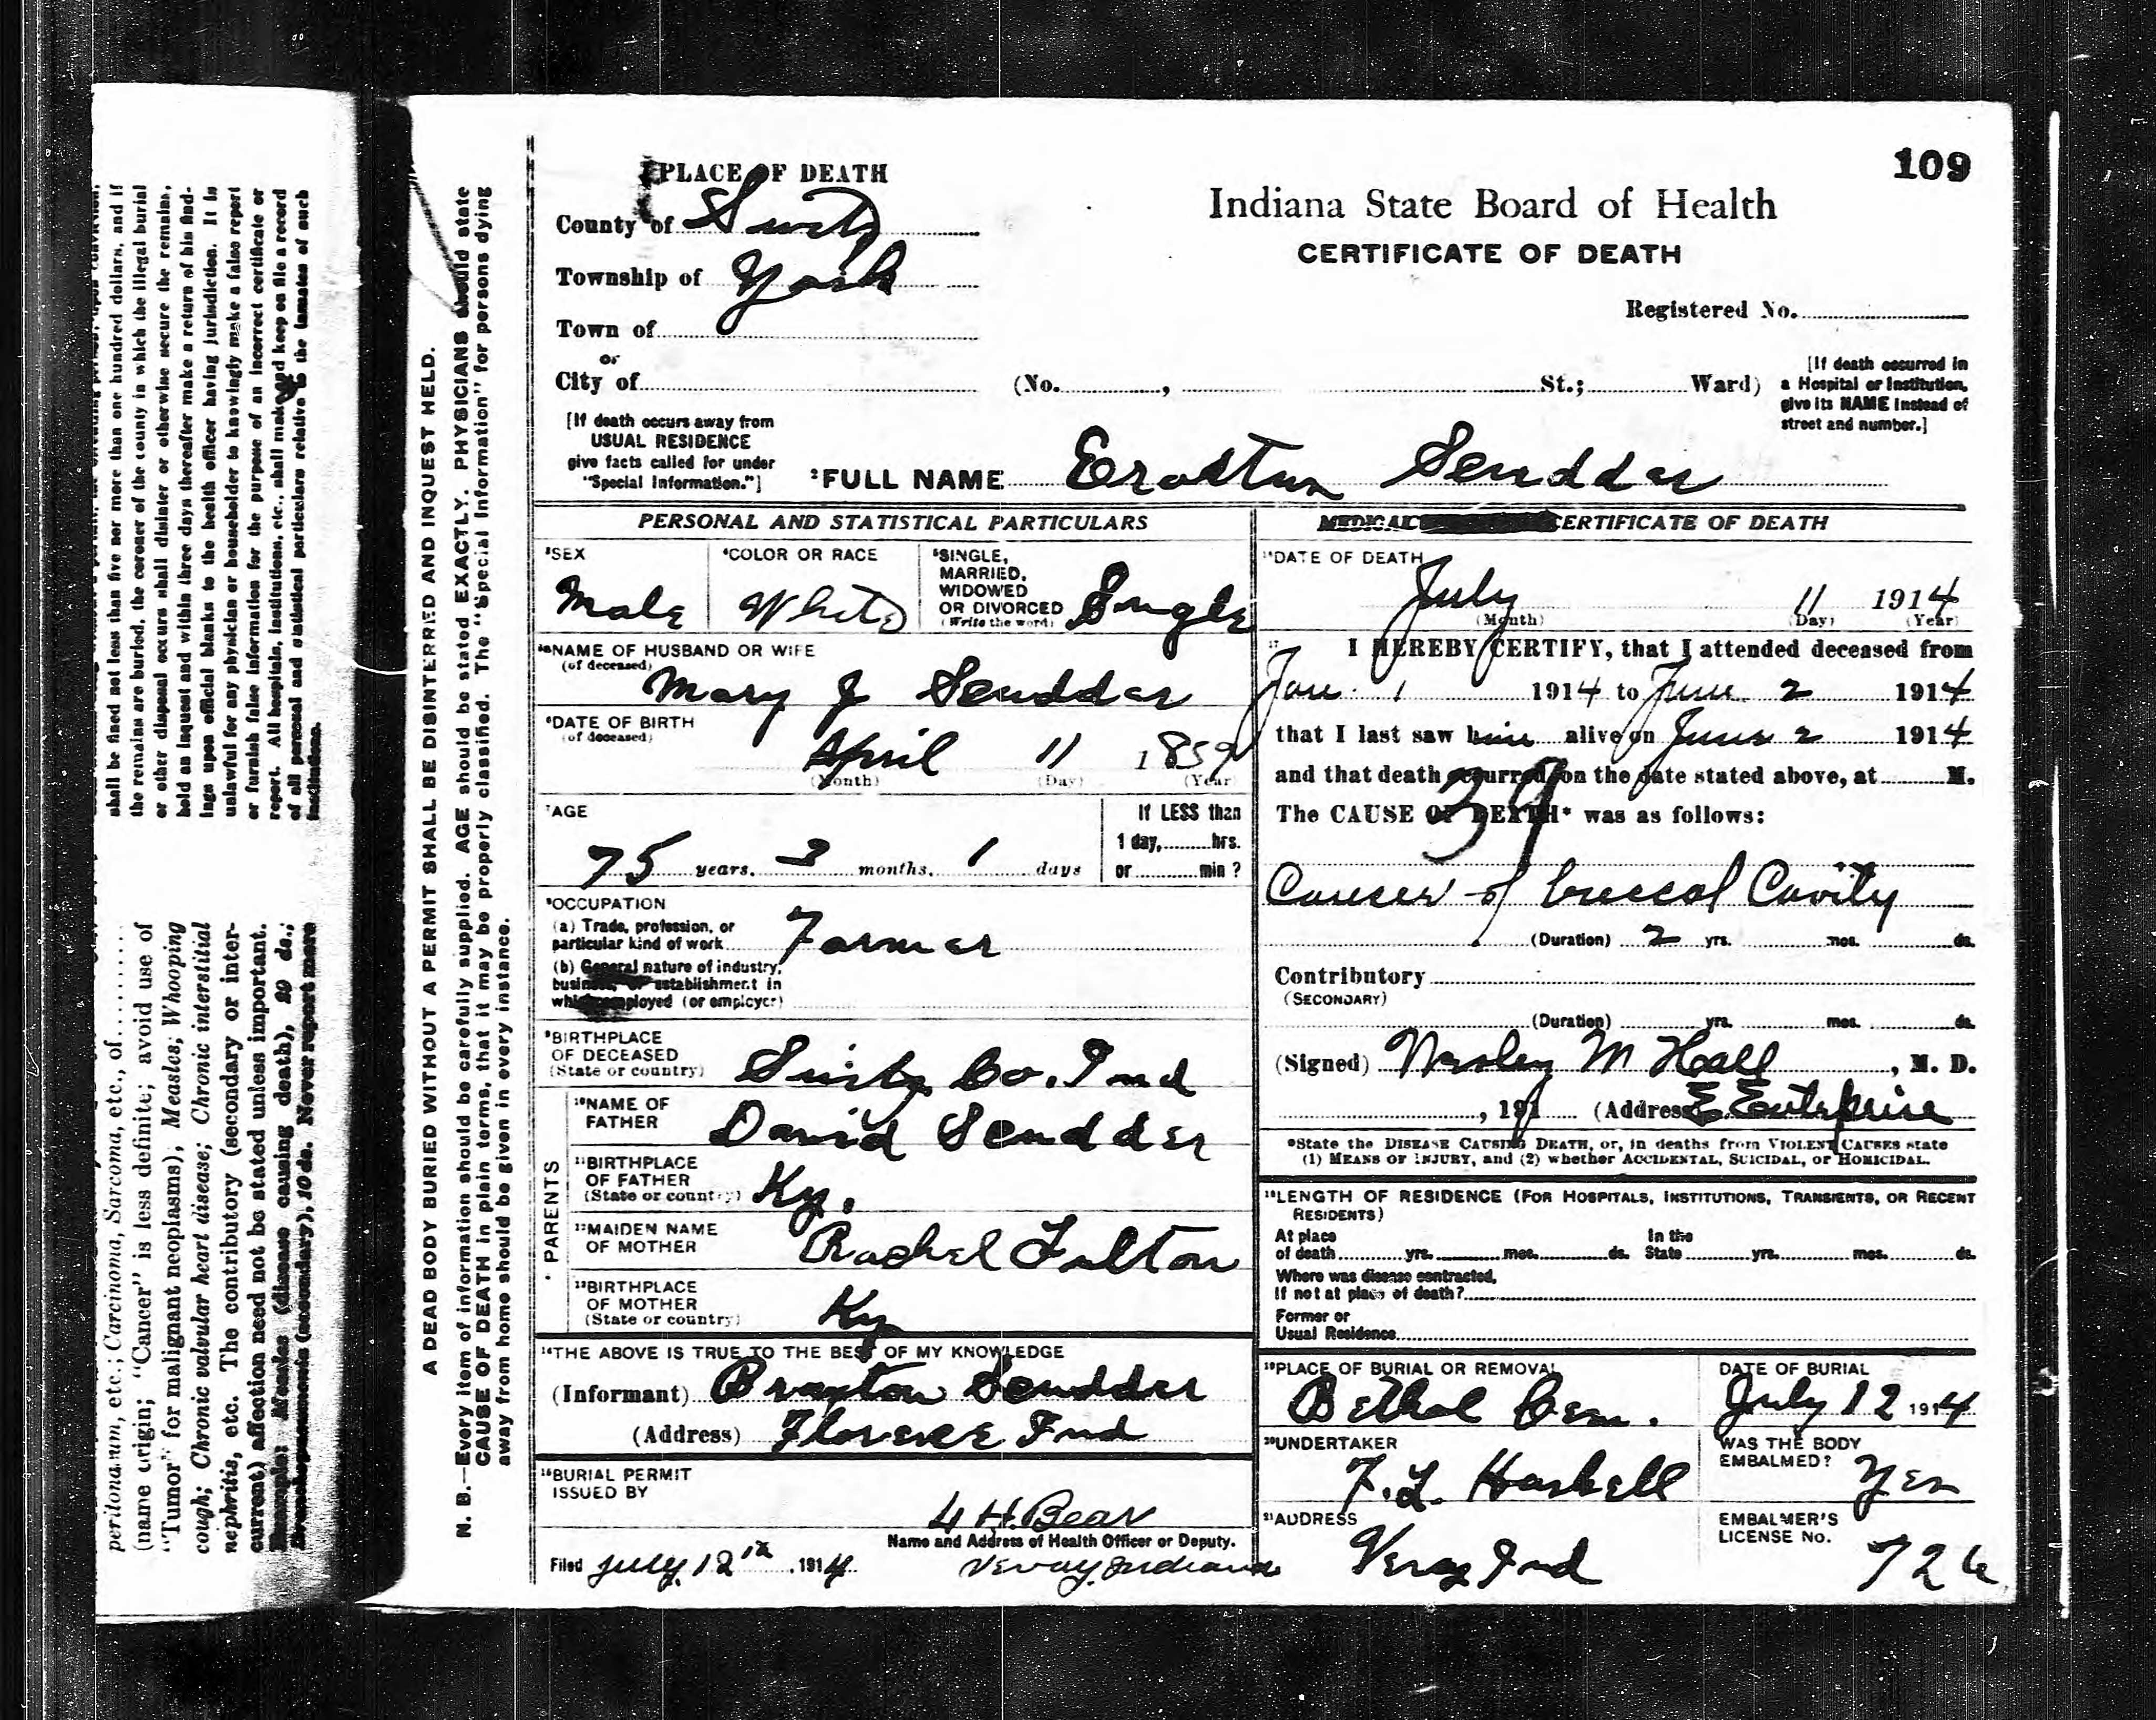 109
PLACE OF DEATH
Indiana State Board of Health
County of Switz
CERTIFICATE OF DEATH
Township of York
Registered No.
Town of
or
City of (No. , St.; Ward)
[If death occurred in
a Hospital or Institution,
give its NAME instead of
street and number.]
[If death occurs away from
USUAL RESIDENCE
give facts called for under
"Special Information."]
²FULL NAME Erastus Scudder
PERSONAL AND STATISTICAL PARTICULARS
³SEX
Male
⁴COLOR OR RACE
White
⁵SINGLE,
MARRIED,
WIDOWED
OR DIVORCED
(Write the word)
Single
NAME OF HUSBAND OR WIFE
(of deceased)
Mary J Scudder
⁶DATE OF BIRTH
(of deceased)
April 11 1859
(Month) (Day) (Year)
⁷AGE
75 years, 3 months, 1 days
If LESS than
1 day, hrs.
or min?
⁸OCCUPATION
(a) Trade, profession, or
particular kind of work Farmer
(b) General nature of industry,
business, or establishment in
which employed (or employer)
⁹BIRTHPLACE
OF DECEASED
(State or country)
Switz Co. Ind
PARENTS
¹⁰NAME OF
FATHER
David Scudder
¹¹BIRTHPLACE
OF FATHER
(State or country)
Ky.
¹²MAIDEN NAME
OF MOTHER
Rachel Fulton
¹³BIRTHPLACE
OF MOTHER
(State or country)
Ky
¹⁴THE ABOVE IS TRUE TO THE BEST OF MY KNOWLEDGE
(Informant) Braxton Scudder
(Address) Florence Ind
¹⁵BURIAL PERMIT
ISSUED BY
H. Bear
Name and Address of Health Officer or Deputy.
Filed July 12 1914 Vevay, Indiana
MEDICAL CERTIFICATE OF DEATH
¹⁶DATE OF DEATH
July 11 1914
(Month) (Day) (Year)
¹⁷ I HEREBY CERTIFY, that I attended deceased from
Jan 1 1914 to June 2 1914
that I last saw him alive on June 2 1914
and that death occurred on the date stated above, at M.
39
The CAUSE OF DEATH* was as follows:
Cancer of buccal Cavity
(Duration) 2 yrs. mos. ds.
Contributory
(SECONDARY)
(Duration) yrs. mos. ds.
(Signed) Wesley M Hall, M. D.
, 191 (Address) E Enterprise
*State the DISEASE CAUSING DEATH, or, in deaths from VIOLENT CAUSES state
(1) MEANS OF INJURY, and (2) whether ACCIDENTAL, SUICIDAL, or HOMICIDAL.
¹⁸LENGTH OF RESIDENCE (FOR HOSPITALS, INSTITUTIONS, TRANSIENTS, OR RECENT
RESIDENTS)
At place
of death yrs. mos. ds.
In the
State yrs. mos. ds.
Where was disease contracted,
If not at place of death?
Former or
Usual Residence
¹⁹PLACE OF BURIAL OR REMOVAL
Bethel Cem.
DATE OF BURIAL
July 12 1914
²⁰UNDERTAKER
F. L. Haskell
WAS THE BODY
EMBALMED? Yes
²¹ADDRESS
Vevay Ind
EMBALMER'S
LICENSE NO.
726
A DEAD BODY BURIED WITHOUT A PERMIT SHALL BE DISINTERRED AND INQUEST HELD.
N. B.—Every item of information should be carefully supplied. AGE should be stated EXACTLY. PHYSICIANS should state
CAUSE OF DEATH in plain terms, that it may be properly classified. The "Special Information" for persons dying
away from home should be given in every instance.
shall be fined not less than five nor more than one hundred dollars, and if
the remains are buried, the coroner of the county in which the illegal burial
or other disposal occurs shall disinter or otherwise secure the remains,
hold an inquest and within three days thereafter make a return of his find-
ings upon official blanks to the health officer having jurisdiction. It is
unlawful for any physician or householder to knowingly make a false report
or furnish false information for the purpose of an incorrect certificate or
report. All hospitals, institutions, etc., shall make and keep on file a record
of all personal and statistical particulars relative to the inmates of such
institutions.
peritonæum, etc.; Carcinoma, Sarcoma, etc., of
(name origin; "Cancer" is less definite; avoid use of
"Tumor" for malignant neoplasms), Measles; Whooping
cough; Chronic valvular heart disease; Chronic interstitial
nephritis, etc. The contributory (secondary or inter-
current) affection need not be stated unless important.
Example: Measles (disease causing death), 29 ds.;
Bronchopneumonia (secondary), 10 ds. Never report mere